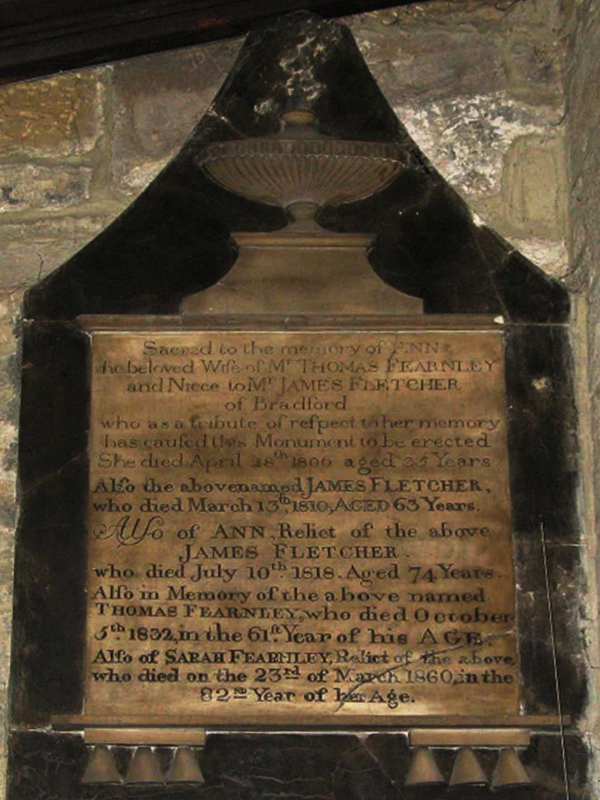 Sacred to the memory of ANN
the beloved Wife of Mr THOMAS FEARNLEY
and Niece to Mr JAMES FLETCHER
of Bradford
who as a tribute of reſpect to her memory
has cauſed this Monument to be erected
She died April 28th 1806 aged 35 Years
Alſo the above named JAMES FLETCHER,
who died March 13th 1810, AGED 63 Years.
Alſo of ANN, Relict of the above
JAMES FLETCHER.
who died July 10th 1818. Aged 74 Years.
Alſo in Memory of the above named
THOMAS FEARNLEY, who died October
5th 1832, in the 61ſt Year of his AGE.
Alſo of SARAH FEARNLEY, Relict of the above,
who died on the 23rd of March 1860, in the
82nd Year of her Age.